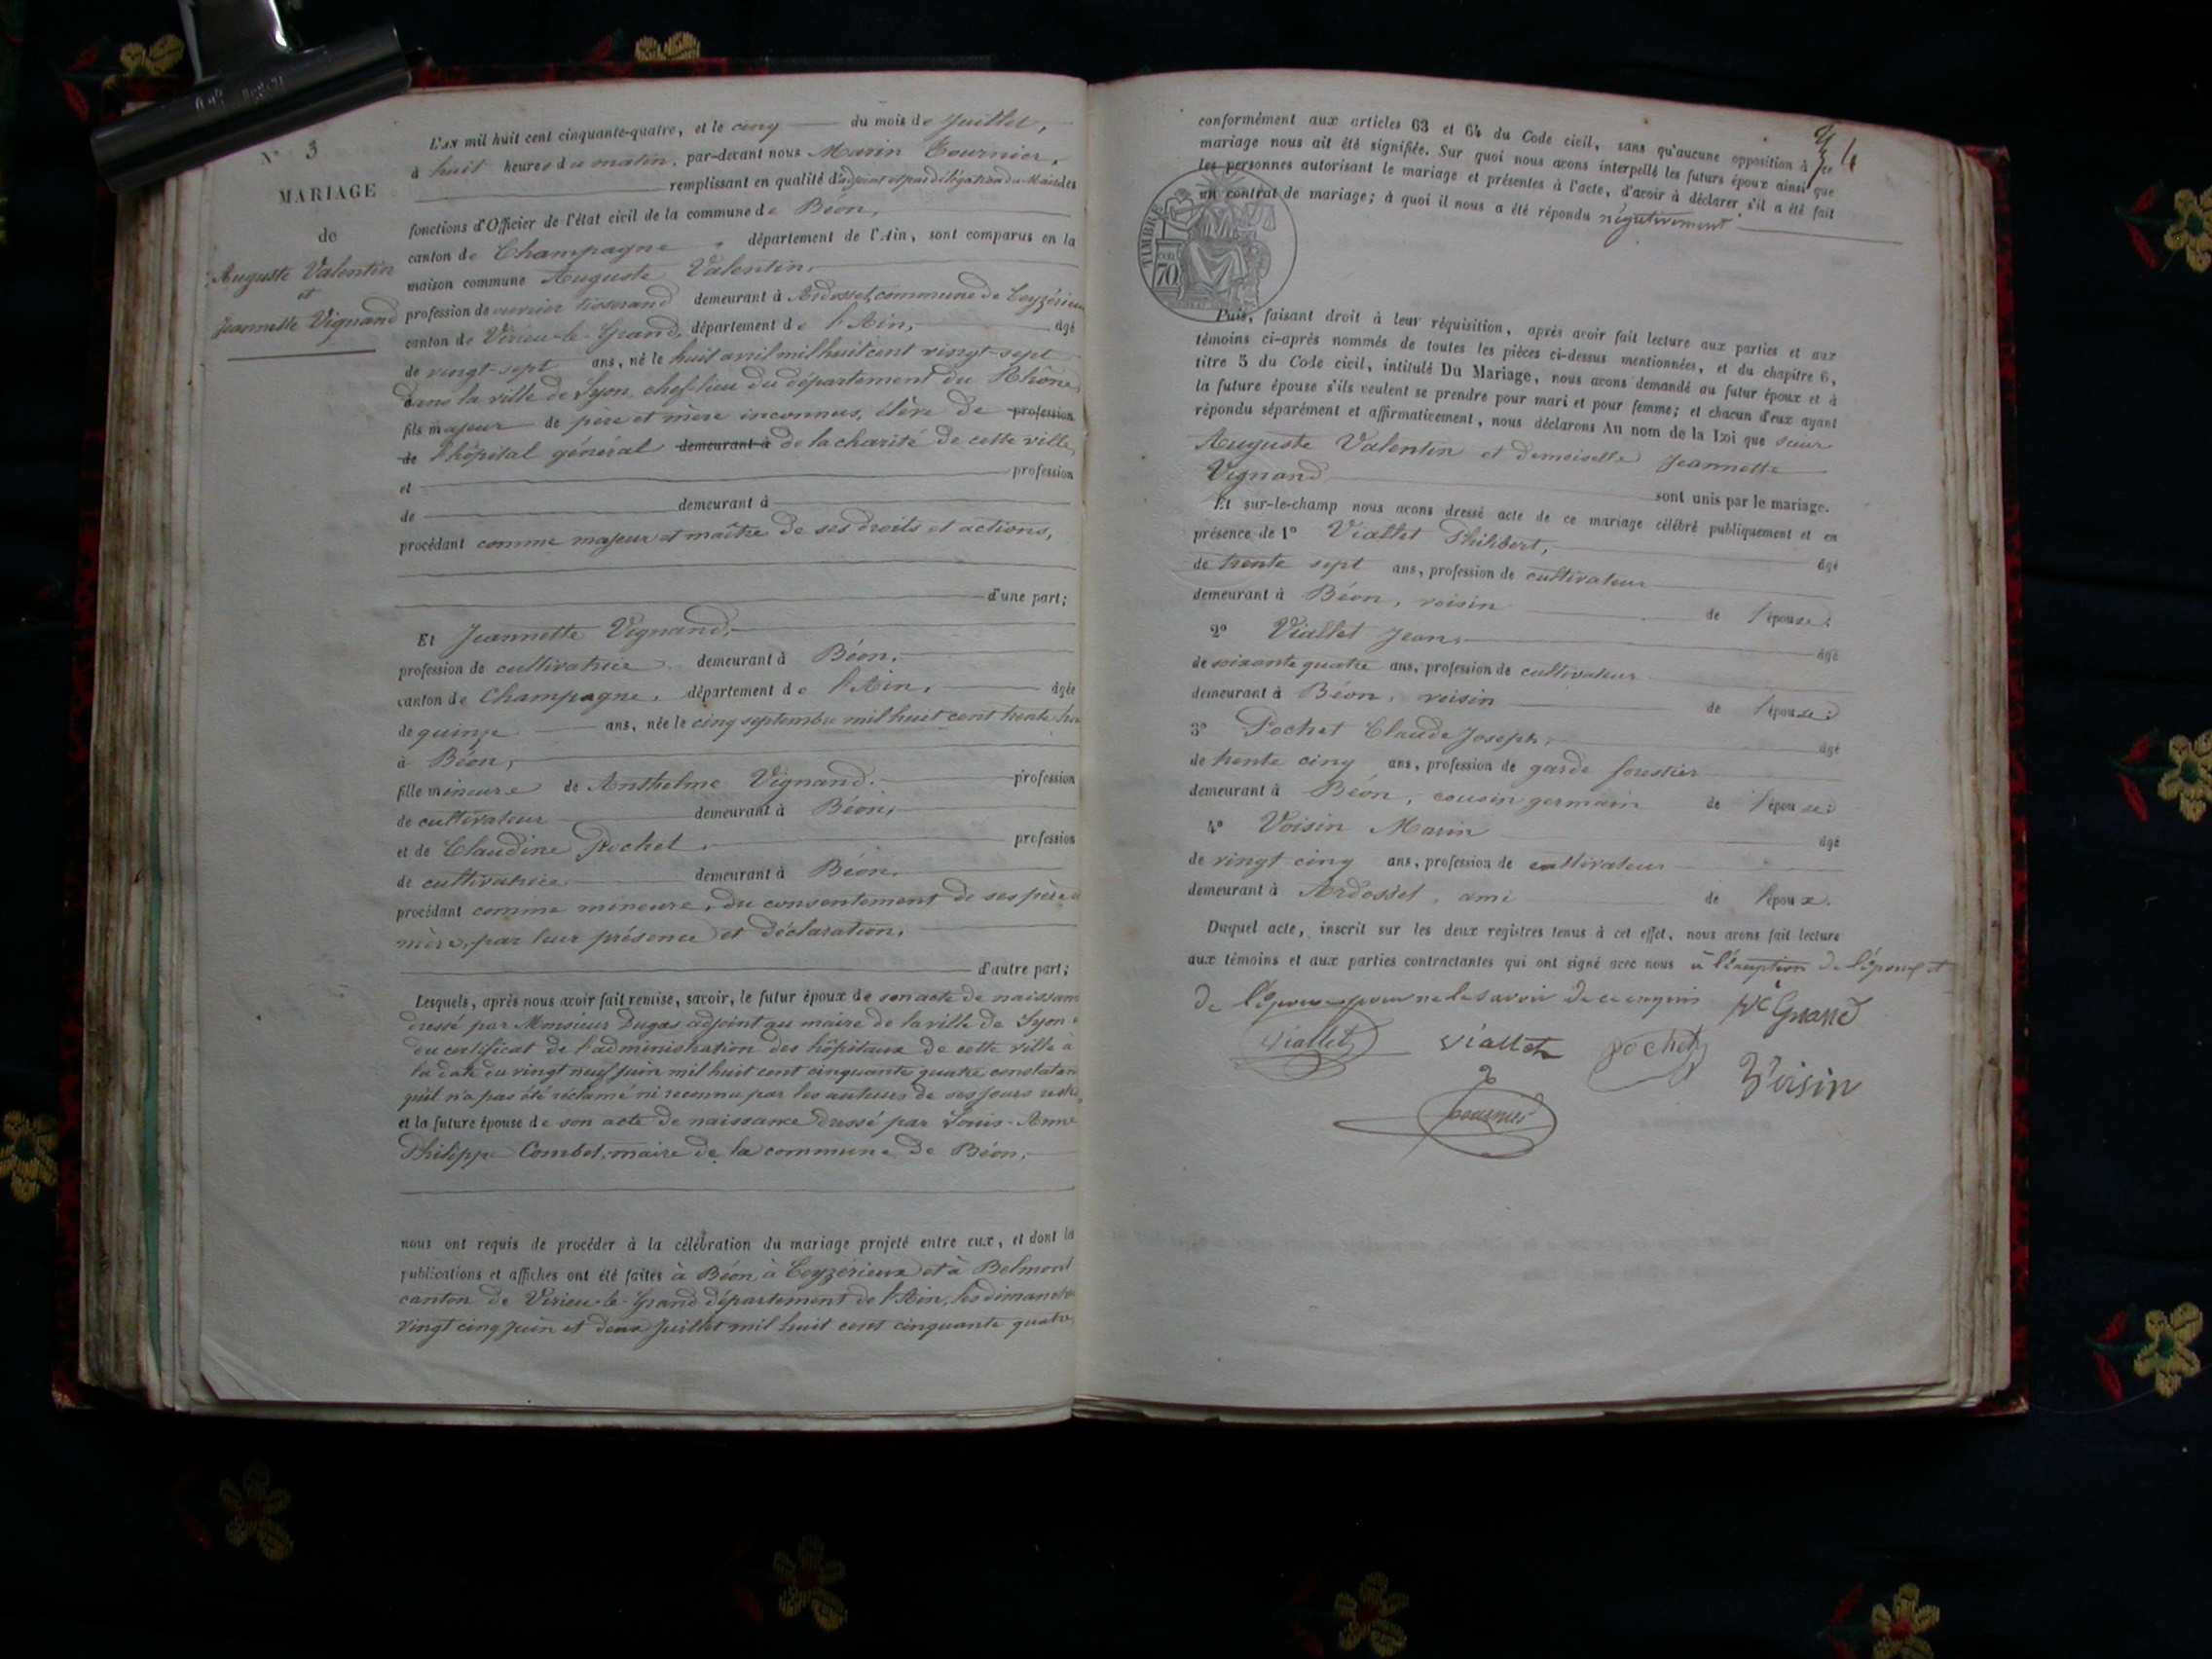 N° 3
MARIAGE
de
Auguste Valentin
et
Jeannette Vignand
L'AN mil huit cent cinquante-quatre, et le cinq du mois de Juillet,
à huit heures du matin, par-devant nous Marin Tournier,
remplissant en qualité d'adjoint et par délégation du Maire les
fonctions d'Officier de l'état civil de la commune de Béon,
canton de Champagne, département de l'Ain, sont comparus en la
maison commune Auguste Valentin,
profession de ouvrier tisserand demeurant à Ardosset, commune de Ceyzérieu
canton de Virieu-le-Grand, département de l'Ain, âgé
de vingt-sept ans, né le huit avril mil huit cent vingt-sept
dans la ville de Lyon, chef-lieu du département du Rhône,
fils majeur de père et mère inconnus, élève de profession
de l'hôpital général demeurant à de la charité de cette ville,
et profession
de demeurant à
procédant comme majeur et maître de ses droits et actions,
d'une part;
Et Jeannette Vignand,
profession de cultivatrice demeurant à Béon,
canton de Champagne, département de l'Ain, âgée
de quinze ans, née le cinq septembre mil huit cent trente huit
à Béon,
fille mineure de Anthelme Vignand, profession
de cultivateur demeurant à Béon,
et de Claudine Pochet, profession
de cultivatrice demeurant à Béon,
procédant comme mineure, du consentement de ses père et
mère, par leur présence et déclaration,
d'autre part;
Lesquels, après nous avoir fait remise, savoir, le futur époux de son acte de naissance
dressé par Monsieur Dugas adjoint au maire de la ville de Lyon et
du certificat de l'administration des hôpitaux de cette ville à
la date du vingt neuf juin mil huit cent cinquante quatre constatant
qu'il n'a pas été réclamé ni reconnu par les auteurs de ses jours
et la future épouse de son acte de naissance dressé par Louis-Anne
Philippe Combet, maire de la commune de Béon,
nous ont requis de procéder à la célébration du mariage projeté entre eux, et dont les
publications et affiches ont été faites à Béon à Ceyzérieux et à Belmont
canton de Virieu-le-Grand département de l'Ain, les dimanches
vingt cinq juin et deux Juillet mil huit cent cinquante quatre,
4
conformément aux articles 63 et 64 du Code civil, sans qu'aucune opposition à ce
mariage nous ait été signifiée. Sur quoi nous avons interpellé les futurs époux ainsi que
les personnes autorisant le mariage et présentes à l'acte, d'avoir à déclarer s'il a été fait
un contrat de mariage; à quoi il nous a été répondu négativement.
TIMBRE
70
Puis, faisant droit à leur réquisition, après avoir fait lecture aux parties et aux
témoins ci-après nommés de toutes les pièces ci-dessus mentionnées, et du chapitre 6,
titre 5 du Code civil, intitulé Du Mariage, nous avons demandé au futur époux et à
la future épouse s'ils veulent se prendre pour mari et pour femme; et chacun d'eux ayant
répondu séparément et affirmativement, nous déclarons Au nom de la Loi que sieur
Auguste Valentin et demoiselle Jeannette
Vignand sont unis par le mariage.
Et sur-le-champ nous avons dressé acte de ce mariage célébré publiquement et en
présence de 1° Viallet Philibert, âgé
de trente sept ans, profession de cultivateur
demeurant à Béon, voisin de l'épouse;
2° Viallet Jean, âgé
de soixante quatre ans, profession de cultivateur
demeurant à Béon, voisin de l'épouse;
3° Pochet Claude Joseph, âgé
de trente cinq ans, profession de garde forestier
demeurant à Béon, cousin germain de l'épouse;
4° Voisin Marin âgé
de vingt cinq ans, profession de cultivateur
demeurant à Ardosset, ami de l'époux.
Duquel acte, inscrit sur les deux registres tenus à cet effet, nous avons fait lecture
aux témoins et aux parties contractantes qui ont signé avec nous à l'exception de l'époux et
de l'épouse pour ne le savoir de ce enquis
Viallet Viallet Pochet
Voisin
Tournier